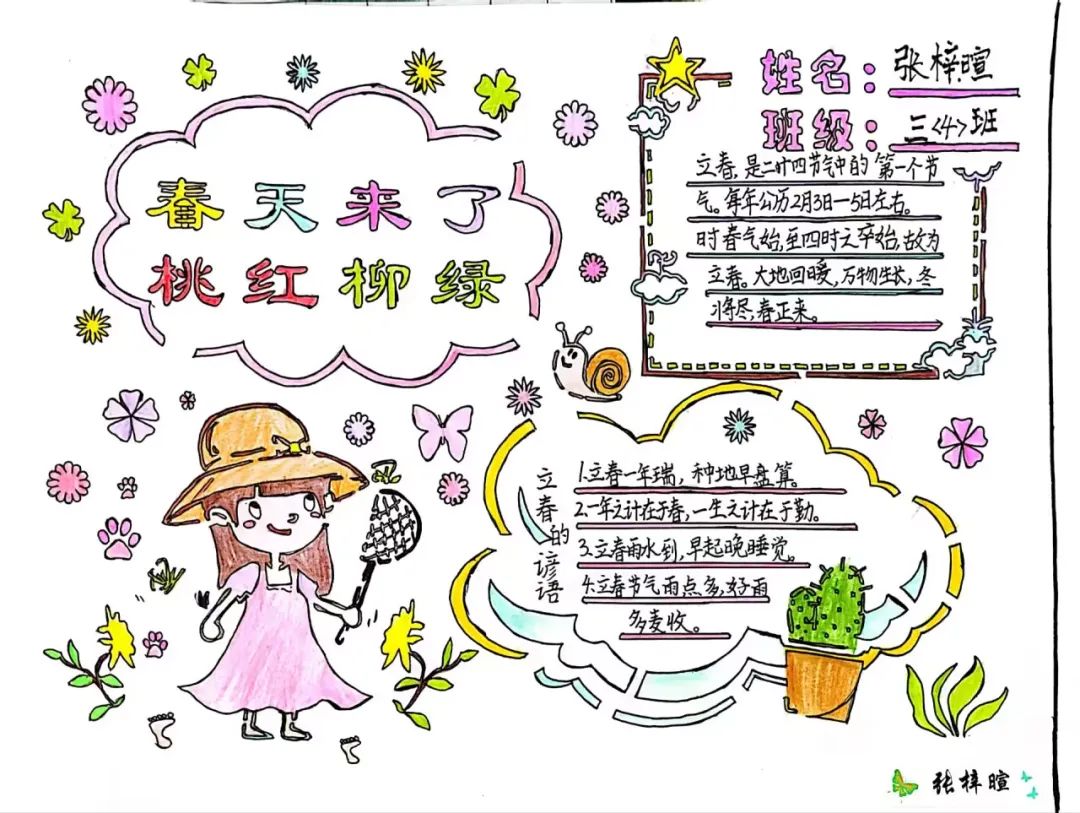 春天来了
桃红柳绿
姓名：张梓暄
班级：三<4>班
立春，是二十四节气中的第一个节
气。每年公历2月3日一5日左右。
时春气始，至四时之卒始，故为
立春。大地回暖，万物生长，冬
将尽，春正来。
立春的谚语
1.立春一年瑞，种地早盘算。
2.一年之计在于春，一生之计在于勤。
3.立春雨水到，早起晚睡觉。
4.立春节气雨点多，好雨
多麦收。
张梓暄